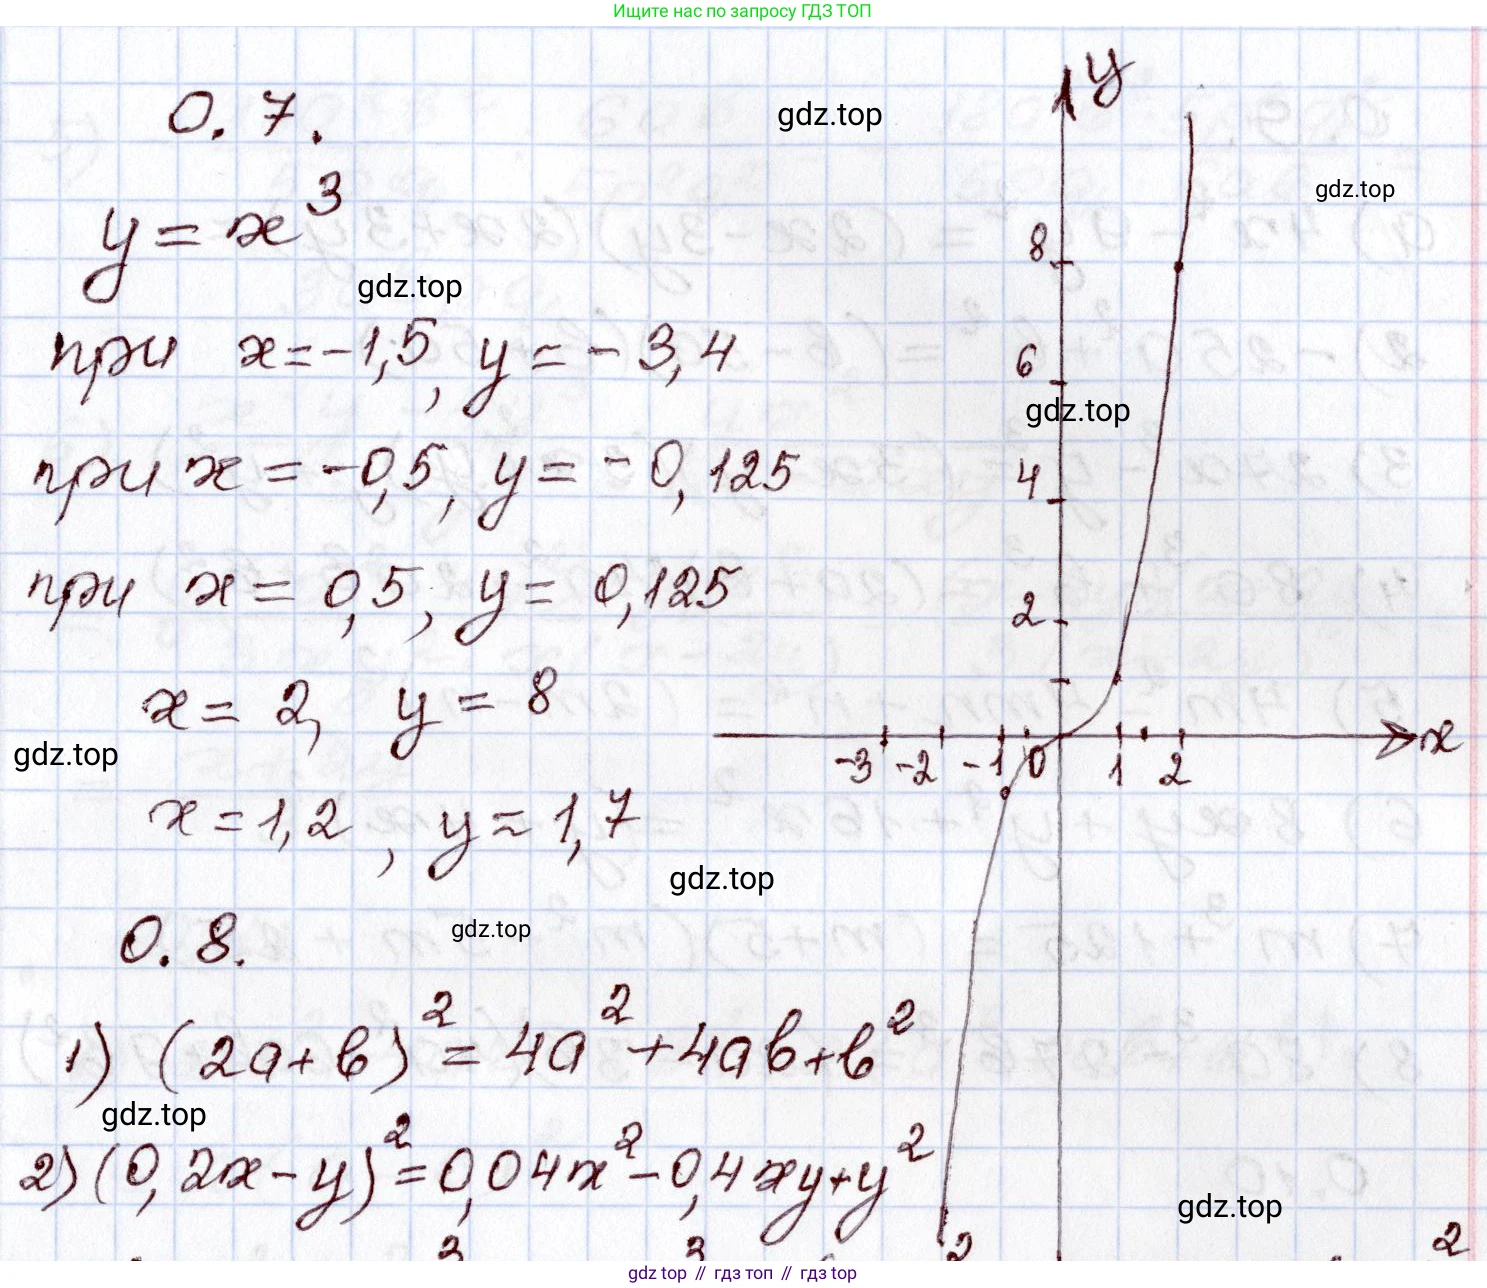 Ищите нас по запросу ГДЗ ТОП
0.7.
gdz.top
gdz.top
y = x³
gdz.top
при x = -1,5, y ≈ -3,4
при x = -0,5, y = -0,125
при x = 0,5, y = 0,125
x = 2, y = 8
gdz.top
x = 1,2, y ≈ 1,7
gdz.top
y
8
6
gdz.top
4
2
-3 -2 -1 0 1 2 x
0.8.
gdz.top
1) (2a+b)² = 4a² + 4ab + b²
gdz.top
2) (0,2x - y)² = 0,04x² - 0,4xy + y²
gdz.top
2
gdz top // гдз топ // гдз top